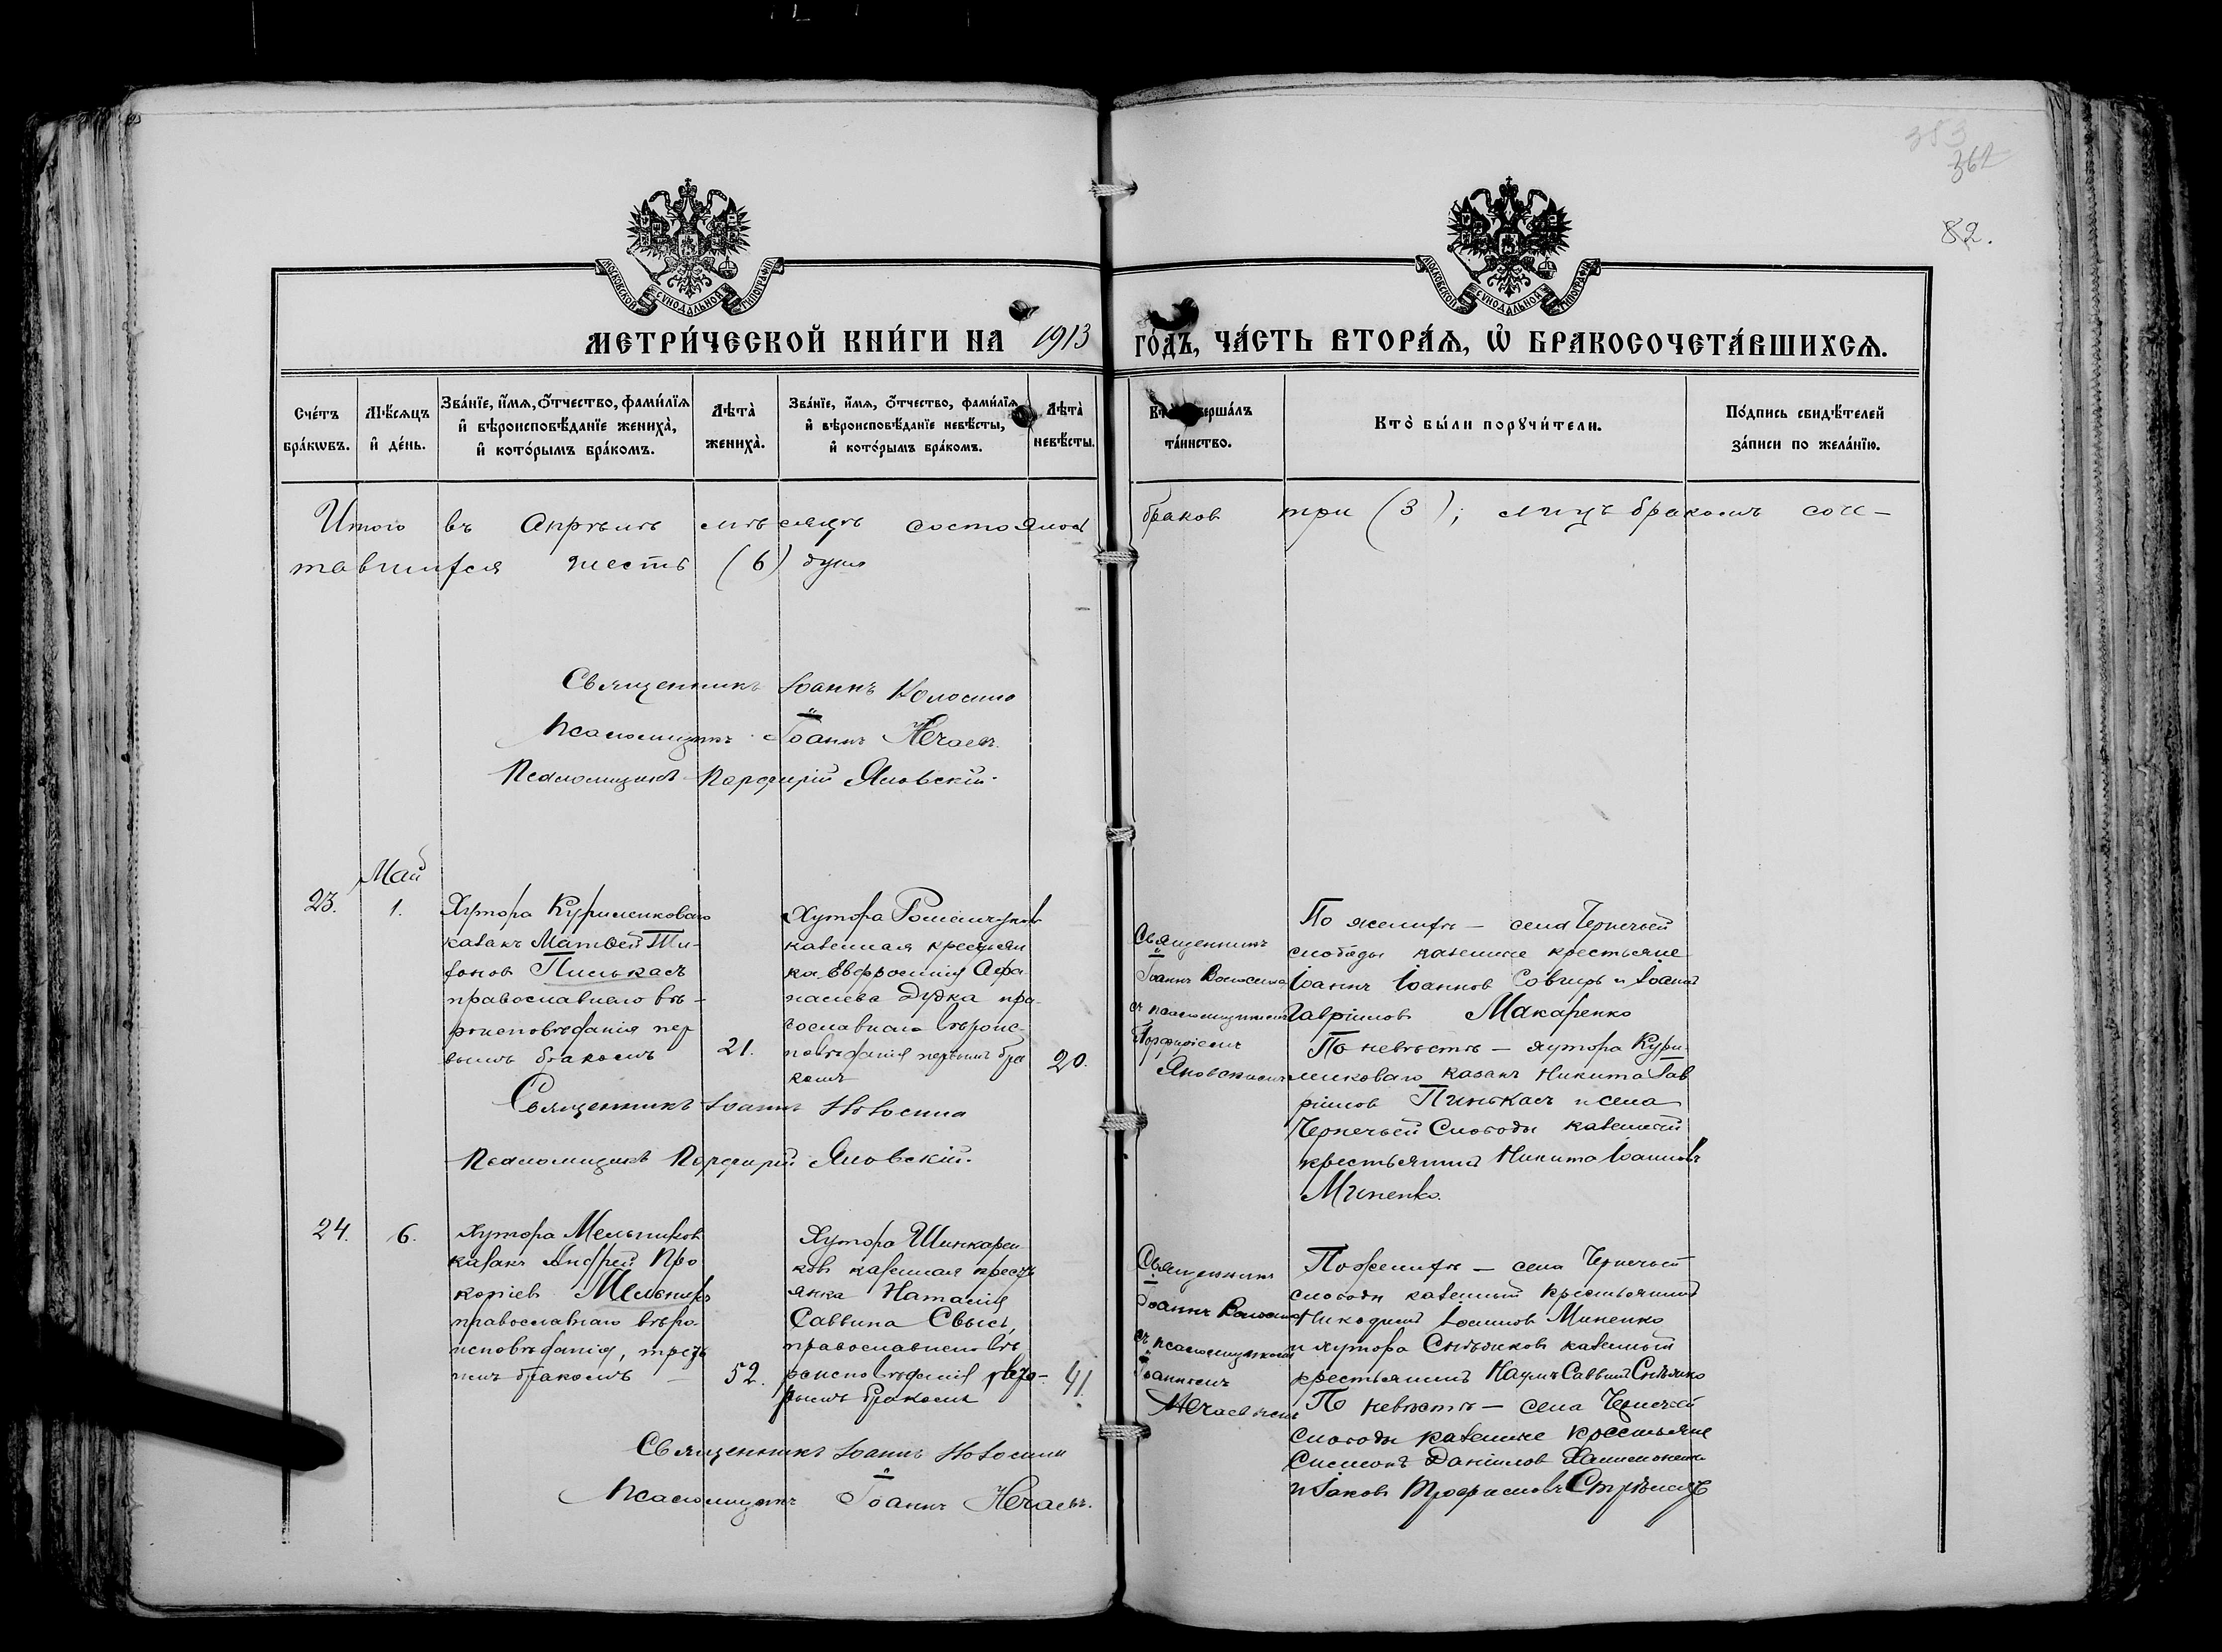 82.
МОСКОВСКОЙ СУНОДАЛЬНОЙ ТИПОГРАФІИ
МОСКОВСКОЙ СУНОДАЛЬНОЙ ТИПОГРАФІИ
МЕТРИ́ЧЕСКОЙ КНИ́ГИ НА 1913 ГО́ДЪ, ЧА́СТЬ ВТОРА́Я, Ѡ҆ БРАКОСОЧЕТА́ВШИХСЯ.
Сче́тъ бра́кѡвъ.
Мѣ́сяцъ и҆ де́нь.
Зва́нїе, и҆́мѧ, ѻ҆́тчество, фами́лїѧ
и҆ вѣроисповѣ́данїе жениха̀,
и҆ кото́рымъ бра́комъ.
Лѣта̀ жениха̀.
Зва́нїе, и҆́мѧ, ѻ҆́тчество, фами́лїѧ
и҆ вѣроисповѣ́данїе невѣ́сты,
и҆ кото́рымъ бра́комъ.
Лѣта̀ невѣ́сты.
та́инство.
Кто̀ бы́ли порꙋчи́тели.
По́дпись свидѣ́телей
за́писи по жела́нїю.
Итого въ Апрѣлѣ мѣсяцѣ состоялось браков три (3); лицъ бракомъ соче-
тавшихся шесть (6) душъ
Священникъ Іоаннъ
Псаломщикъ Іоаннъ Нечаевъ.
Псаломщикъ Порфирій Яновскій.
Май
23.
1.
Хутора Куриленкового
казакъ Матвей Ти-
Пинькасъ
православнаго вѣ-
роисповѣданія пер
вымъ бракомъ
21.
Хутора
казенная крестьян
ка Евфросинія Афа-
насіева Дудка пра-
вославнаго вѣроис-
повѣданія первымъ бра
комъ
20.
Священникъ
Іоаннъ
съ псаломщикомъ
Порфиріемъ
Яновскимъ
По женихѣ — села Чернечьей
слободы казенные крестьяне
Іоаннъ Іоаннов и Іоаннъ
Гавріиловъ Макаренко
По невѣстѣ — хутора Кури-
казакъ Никита Гав
ріилов Пинькасъ и села
Чернечьей Слободы казенный
крестьянинъ Никита Іоаннов
Миненко.
Священникъ Іоаннъ
Псаломщикъ Порфирій Яновскій.
24.
6.
Хутора Мельников
казакъ Андрей Про
копіев Мельникъ
православнаго вѣро-
исповѣданія, треть
имъ бракомъ
52.
Хутора Шинкарен
ков казенная кресть
янка Наталія
Саввина Свысь,
православнаго вѣ
роисповѣданія вто-
рымъ бракомъ
41.
Священникъ
Іоаннъ
съ псаломщикомъ
Іоанномъ
Нечаевымъ
По женихѣ — села Чернечьей
слободы казенный крестьянинъ
Никодимъ Іоаннов Миненко
и хутора казенный
крестьянинъ Наумъ Саввинъ
По невѣстѣ — села Чернечьей
слободы казенные крестьяне
Симеонъ Даніилов
и Іаков Трофимовъ
Священникъ Іоаннъ
Псаломщикъ Іоаннъ Нечаевъ.